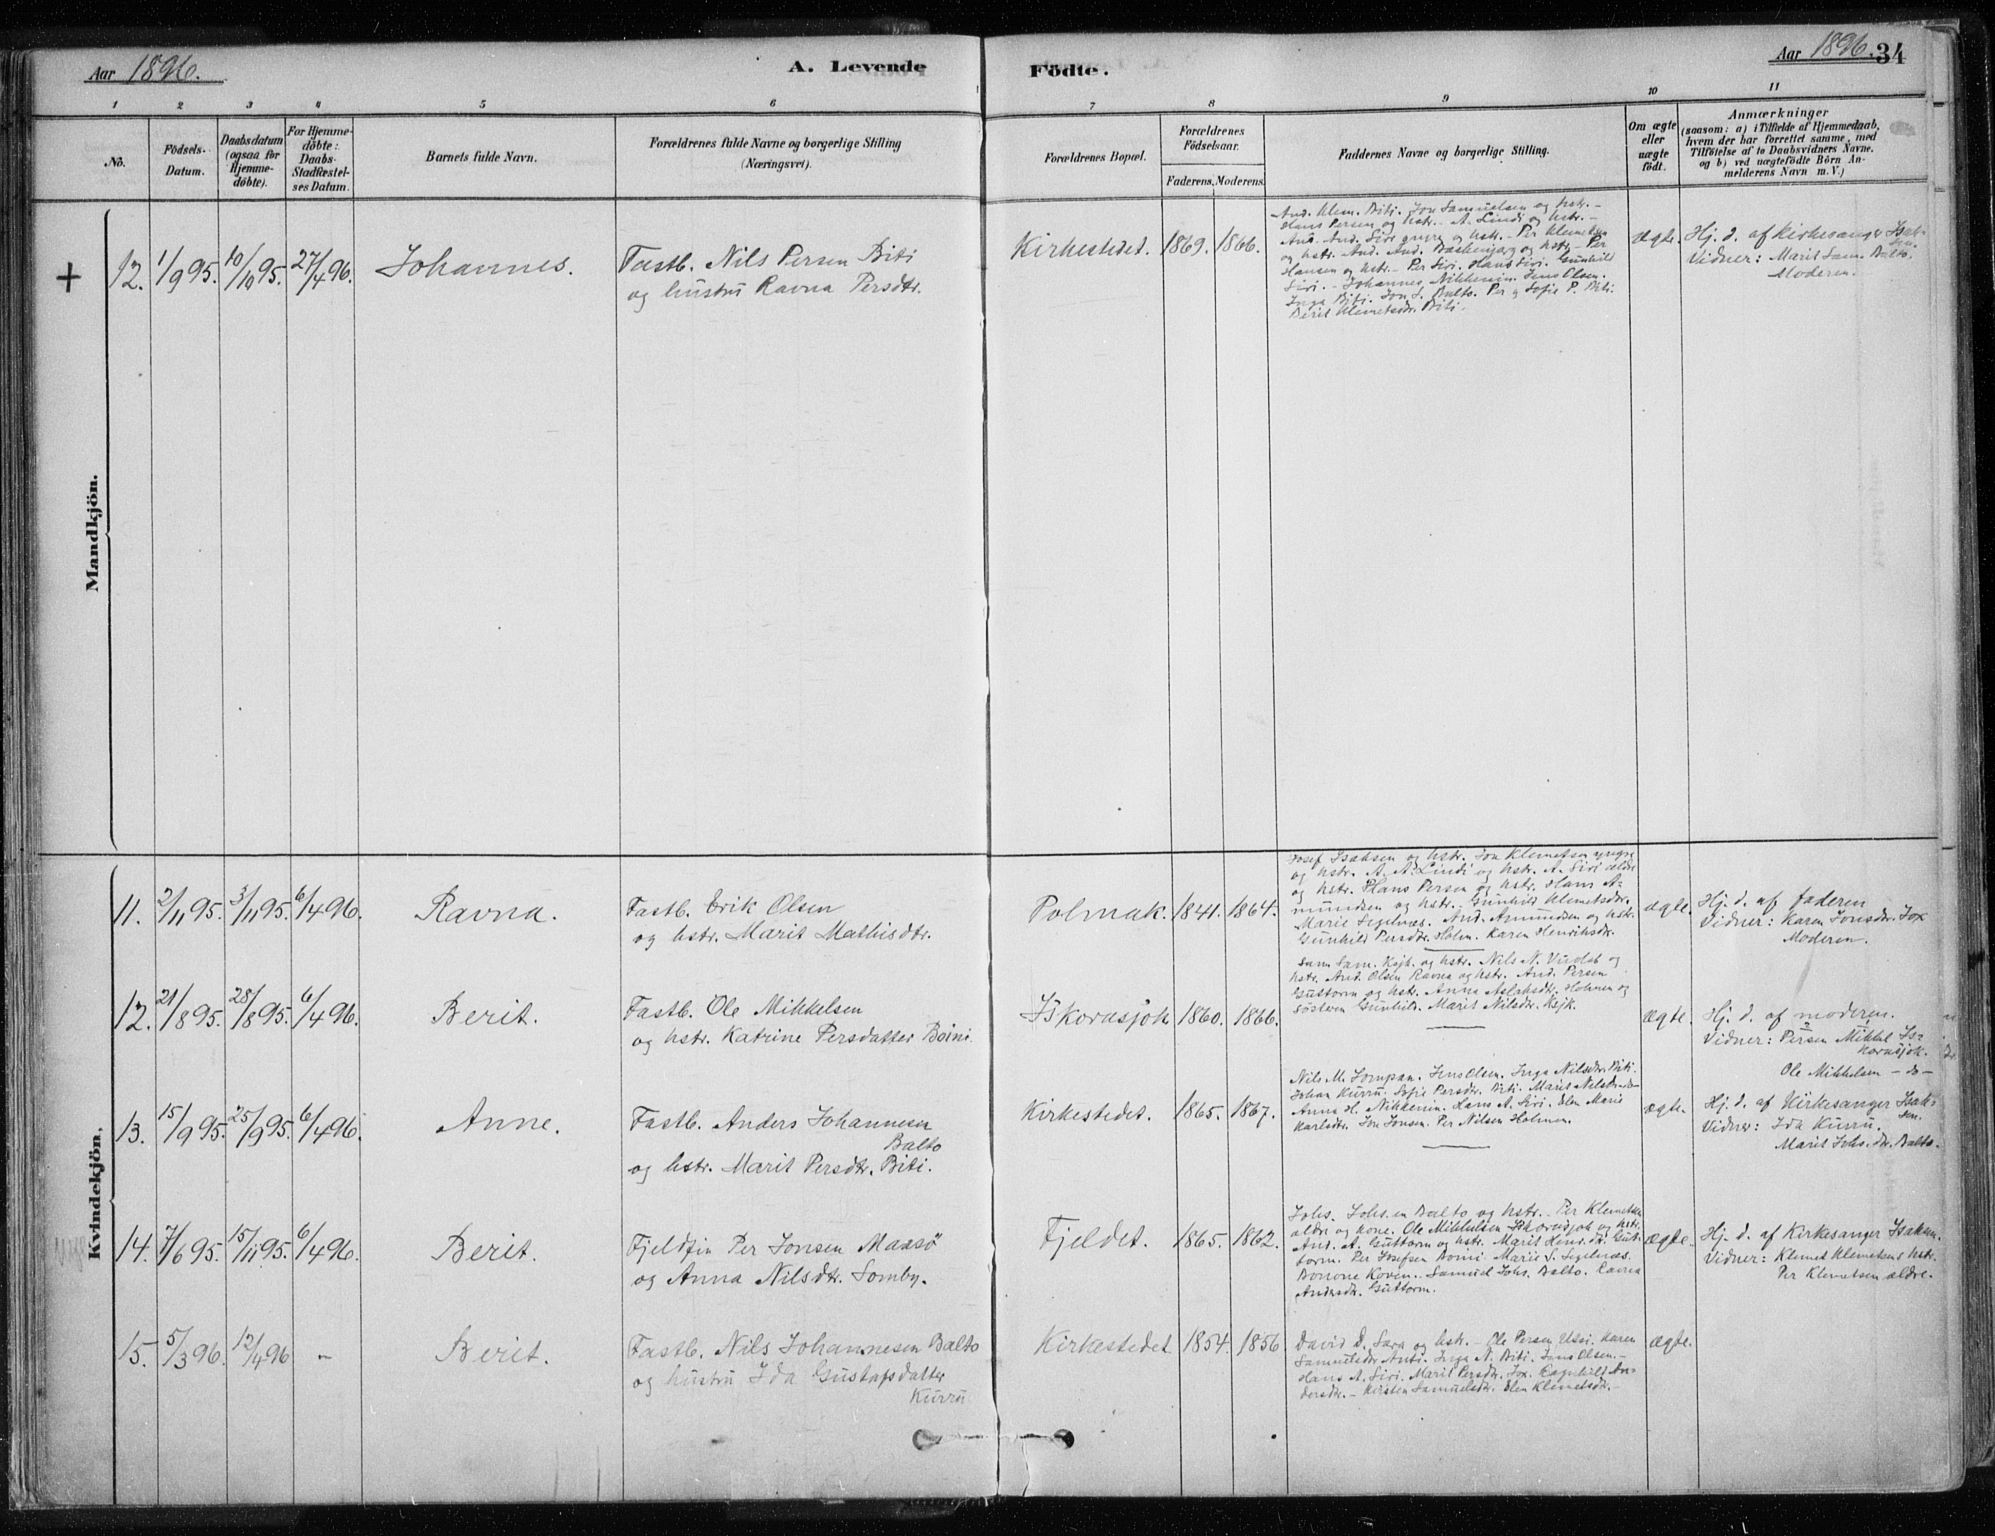 Aar 1896.
A. Levende
Födte.
Aar 1896.
34
1 2 3 4 5 6 7 8 9 10 11
No.
Födsels-
Datum.
Daabsdatum
(ogsaa for
Hjemme-
döbte).
For Hjemme-
döbte:
Daabs-
Stadfæstel-
ses Datum.
Barnets fulde Navn.
Forældrenes fulde Navne og borgerlige Stilling
(Næringsvei).
Forældrenes Bopæl.
Forældrenes
Födselsaar.
Faderens. Moderens.
Faddernes Navne og borgerlige Stilling.
Om ægte
eller
uægte
födt.
Anmærkninger
(saasom: a) i Tilfælde af Hjemmedaab,
hvem der har forrettet samme, med
Tilföielse af to Daabsvidners Navne.
og b) ved uægtefödte Börn An-
melderens Navn m. V.)
Mandkjön.
+ 12. 1/9 95. 10/10 95. 27/4 96.
Johannes.
Fastb. Nils Persen Biti
og hustru Ravna Persdtr.
Kirkestedet. 1869. 1866.
And. Klem. Biti. Jon Samuelsen og hstr. –
Hans Persen og hstr. – A. Lindi og hstr. –
And. And. Siri yngre og hstr. – Per Klemetsen
og hstr. And. And. og hstr. – Per
Hansen og hstr. – Per Siri. Hans Siri. Gunhild
Siri. – Johannes Nikkenin. Jens Olsen.
Inga Biti. Jon S. Balto. Per og Sofie P. Biti.
Berit Klemetsdtr. Biti.
ægte.
Hj. d. af kirkesanger Isak-
sen.
Vidner: Marit Sam. Balto.
Moderen.
Kvindekjön.
11. 2/11 95. 3/11 95. 6/4 96.
Ravna.
Fastb. Erik Olsen
og hstr. Marit Mathisdtr.
Polmak. 1841. 1864.
Josef Isaksen og hstr. Jon Klemetsen yngre
og hstr. A. A. Lindi og hstr. A. Siri ældre
og hstr. Hans Persen og hstr. Hans A-
mundsen og hstr. Gunhild Klemetsdtr.
Marie Segelnæs. And. Amundsen og hstr.
Gunhild Persdtr. Holm. Karen Henriksdtr.
ægte.
Hj. d. af faderen
Vidner: Karen Jonsdtr. Jox
Moderen.
12. 21/8 95. 28/8 95. 6/4 96.
Berit.
Fastb. Ole Mikkelsen
og hstr. Katrine Persdatter Boini.
Iskorasjok 1860. 1866.
Sam. Sam. Ksjk. og hstr. Nils N. Vuolab og
hstr. And. Olsen Ravna og hstr. And. Persen
Guttorm og hstr. Anna Aslaksdtr. Holmen og
søsteren Gunhild. Marit Nilsdtr. Ksjk.
ægte.
Hj. d. af moderen.
Vidner: Persen Mikkel Is-
korasjok.
Ole Mikkelsen – do –
13. 15/9 95. 25/9 95. 6/4 96.
Anne.
Fastb. Anders Johannesen
Balto
og hstr. Marit Persdtr. Biti.
Kirkestedet. 1865. 1867.
Nils M. Jompan. Jens Olsen. Inga Nilsdtr. Biti.
Johan Kurru. Sofie Persdtr. Biti. Marit Nilsdtr. do
Anna H. Nikkenin. Hans A. Siri. Elen Marie
Karlsdtr. Jon Jonsen. Per Nilsen Holmen.
ægte.
Hj. d. af Kirkesanger Isak-
sen.
Vidner: Ida Kurru.
Marit Johs. dtr. Balto.
14. 7/6 95. 15/11 95. 6/4 96.
Berit.
Fjeldfin Per Jonsen Maasö
og Anna Nilsdtr. Somby.
Fjeldet. 1865. 1862.
Johs. Johs. en Balto og hstr. – Per Klemetsen
ældre og kone. Ole Mikkelsen Iskorasjok og hstr.
And. A. Guttorm og hstr. Marit Henr. dtr. Gut-
torm. Per Josefsen Boini. Marie S. Segelnæs.
Koven. Samuel Johs. Balto. Ravna
Andersdtr. Guttorm.
ægte.
Hj. d. af Kirkesanger Isaksen.
Vidner: Klemet Klemetsens hstr.
Per Klemetsen ældre.
15. 5/3 96. 12/4 96 –
Berit.
Fastb. Nils Johannesen Balto
og hustru Ida Gustafsdatter
Kurru
Kirkestedet 1854. 1856
David D. Sara og hstr. – Ole Persen Utsi. Karen
Samuelsdtr. Anti. Inga N. Biti. Jens Olsen. –
Hans A. Siri. Marit Persdtr. Jox. Ragnhild An-
dersdtr. – Kirsten Samuelsdtr. Elen Klemetsdtr. –
ægte.